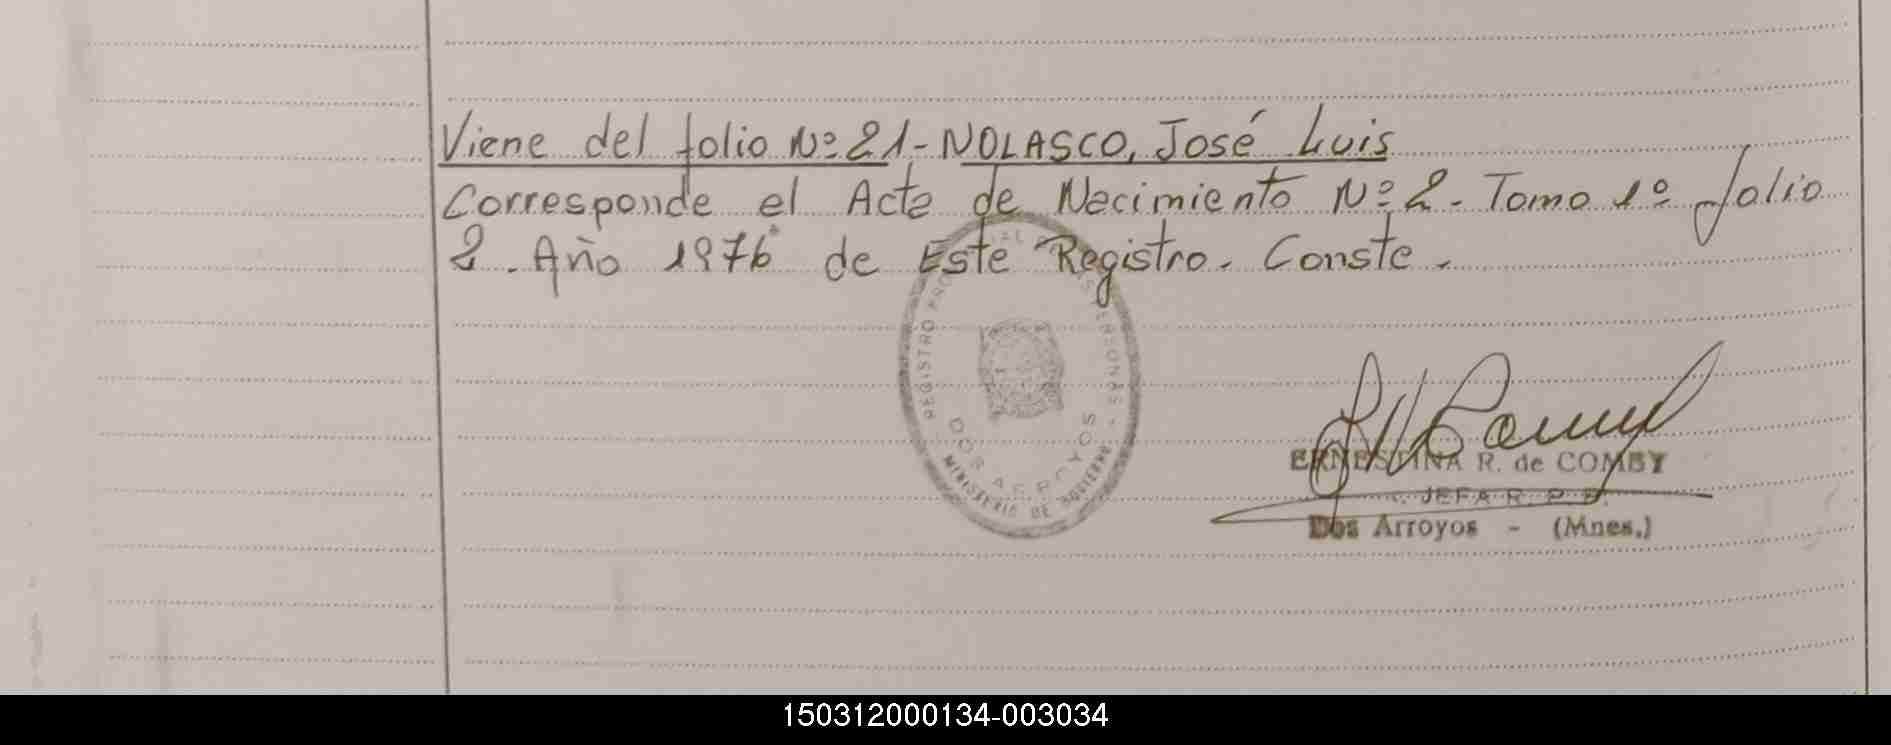 Viene del folio Nº 21 - NOLASCO, José Luis
Corresponde al Acta de Nacimiento Nº 2 - Tomo 1º folio
2. Año 1976 de Este Registro. Conste.
REGISTRO PROVINCIAL DE LAS PERSONAS
DOS ARROYOS
MINISTERIO DE GOBIERNO
ERNESTINA R. de COMBY
JEFA R. P. P.
Dos Arroyos - (Mnes.)
150312000134-003034